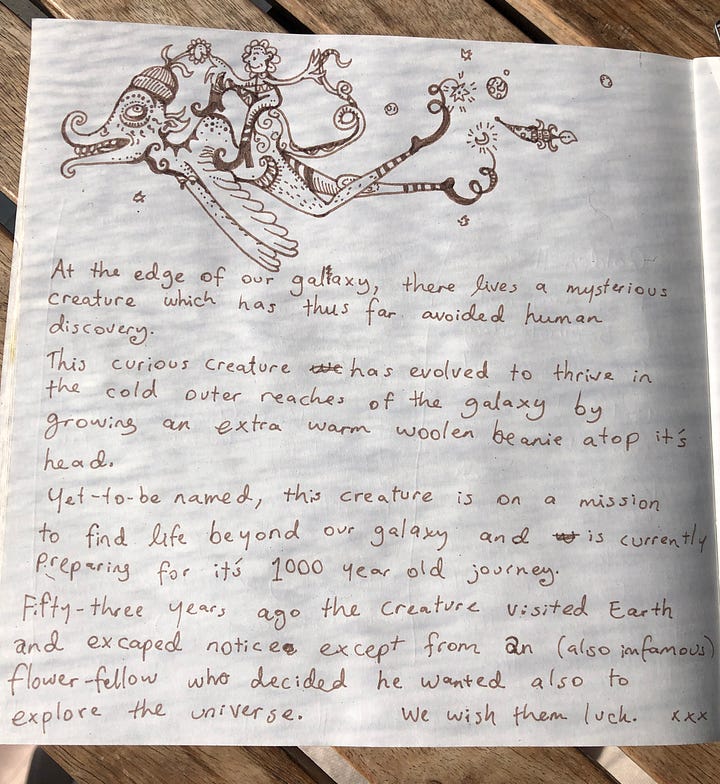 At the edge of our galaxy, there lives a mysterious
creature which has thus far avoided human
discovery.
This curious creature has evolved to thrive in
the cold outer reaches of the galaxy by
growing an extra warm woolen beanie atop it's
head.
Yet-to-be named, this creature is on a mission
to find life beyond our galaxy and is currently
preparing for it's 1000 year old journey.
Fifty-three years ago the creature visited Earth
and excaped notice except from an (also infamous)
flower-fellow who decided he wanted also to
explore the universe. We wish them luck. xxx